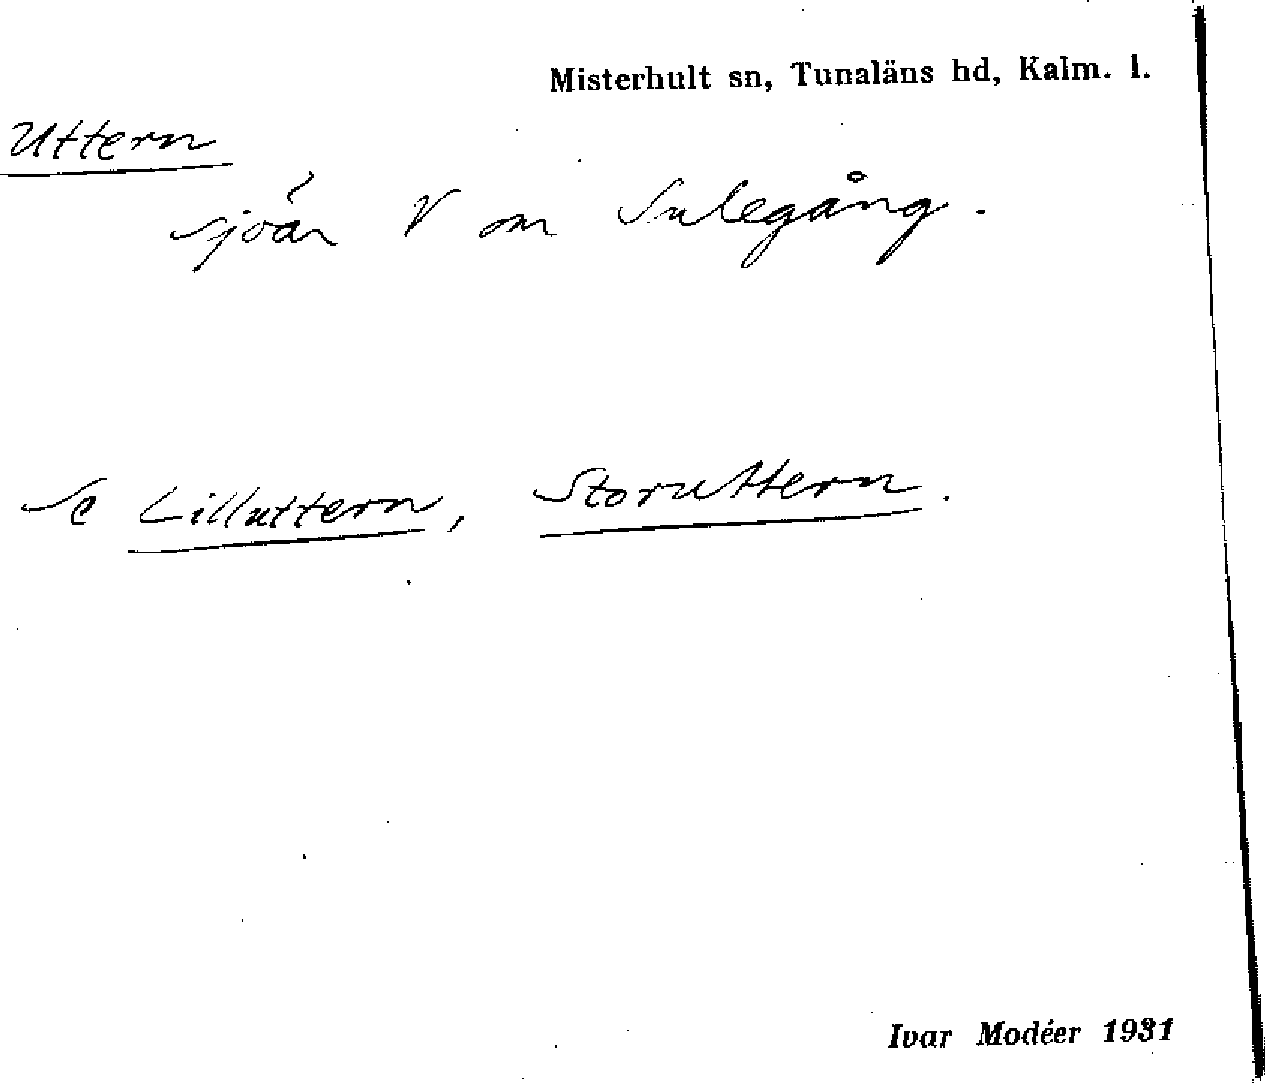 Misterhult sn, Tunaläns hd, Kalm. l.
Uttern
sjöar V om Sulegång.
Se Lilluttern, Storuttern.
Ivar Modéer 1931